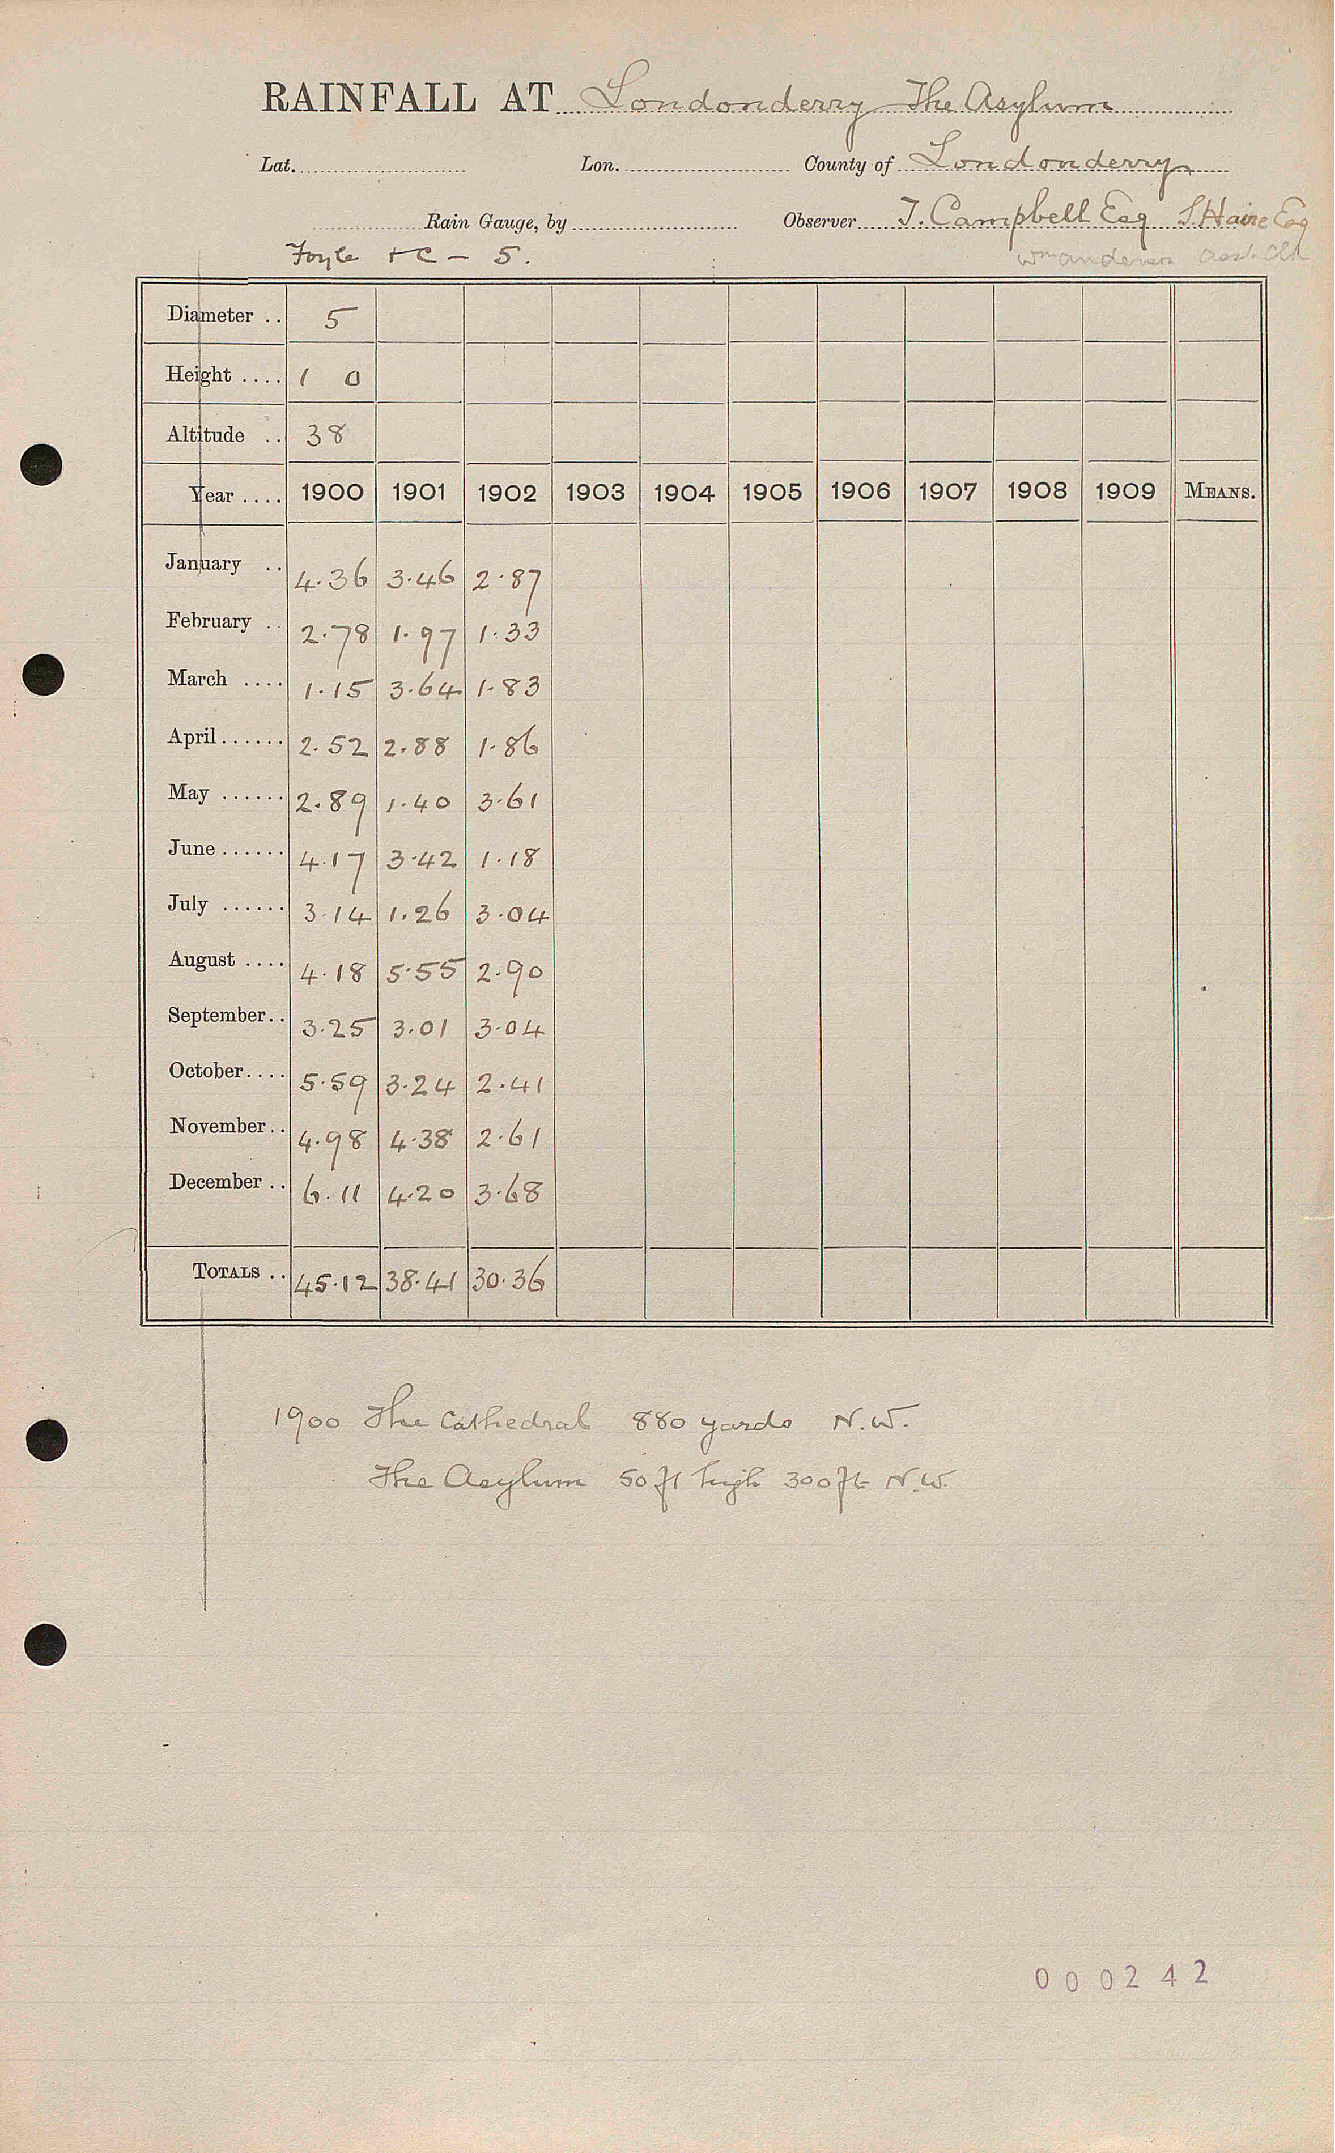 RAINFALL AT Londonderry The Asylum
Lat. Lon. County of Londonderry
Rain Gauge, by Observer T. Campbell Esq S. Haire Esq
Foyle + C - 5. Wm Anderson Asst. Clk
Diameter .. 5
Height .... 1 0
Altitude .. 38
Year .... 1900 1901 1902 1903 1904 1905 1906 1907 1908 1909 MEANS.
January .. 4.36 3.46 2.87
February .. 2.78 1.97 1.33
March .... 1.15 3.64 1.83
April...... 2.52 2.88 1.86
May ...... 2.89 1.40 3.61
June...... 4.17 3.42 1.18
July ...... 3.14 1.26 3.04
August .... 4.18 5.55 2.90
September.. 3.25 3.01 3.04
October.... 5.59 3.24 2.41
November.. 4.98 4.38 2.61
December .. 6.11 4.20 3.68
TOTALS .. 45.12 38.41 30.36
1900 The Cathedral 880 yards N.W.
The Asylum 50 ft high 300 ft N.W.
000242